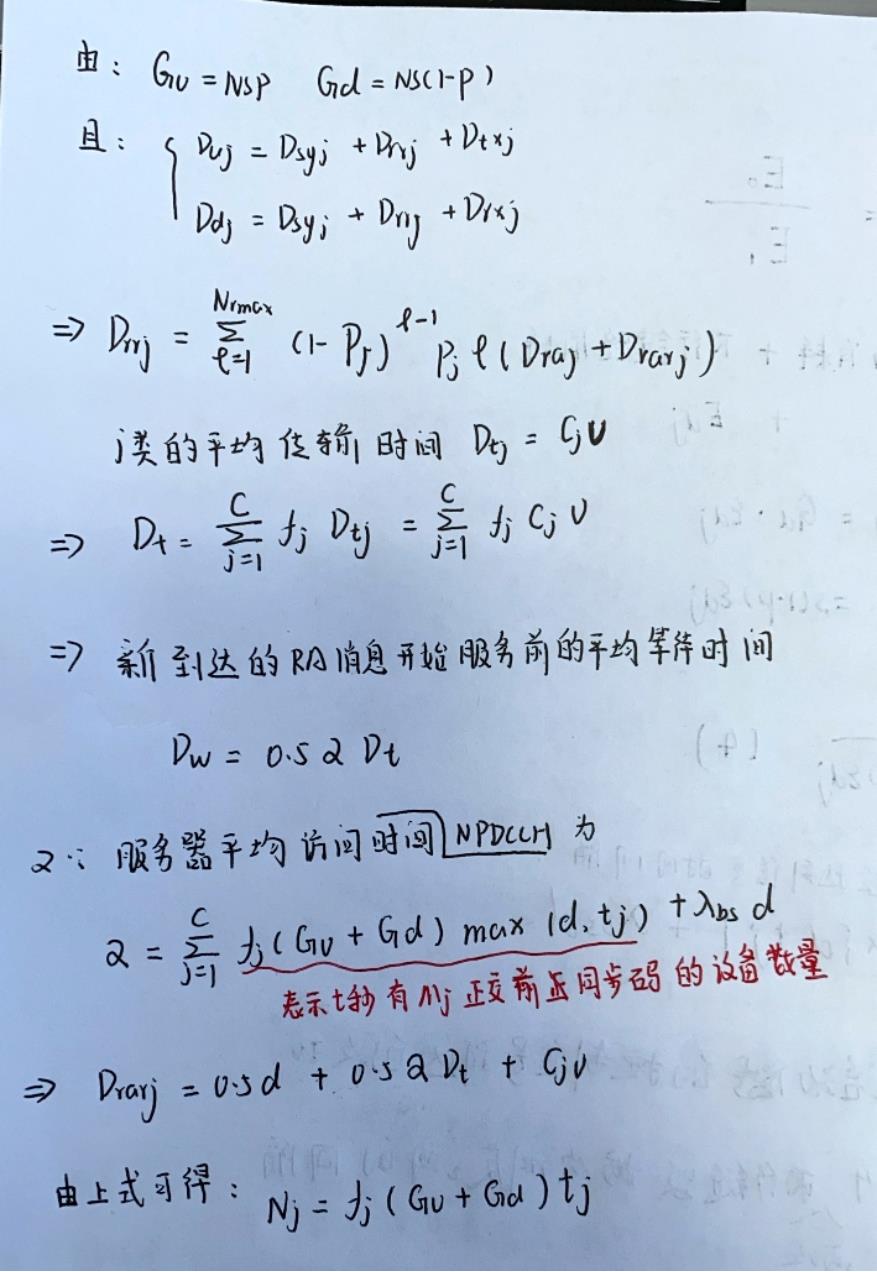 由: Gu = NSP  Gd = NS(1-P)
且: { Duj = Dsyj + Drrj + Dtxj
Ddj = Dsyj + Drrj + Drxj
⇒ Drrj = ∑_{ℓ=1}^{Nrmax} (1-Pj)^{ℓ-1} Pj ℓ (Draj + Drarj)
j类的平均传输时间 Dtj = Cjυ
⇒ Dt = ∑_{j=1}^{C} fj Dtj = ∑_{j=1}^{C} fj Cj υ
⇒ 新到达的RA消息开始服务前的平均等待时间
Dw = 0.5 Q Dt
Q: 服务器平均访问时间 NPDCCH 为
Q = ∑_{j=1}^{C} fj (Gu + Gd) max (d, tj) + λbs d
表示t秒有Mj正交前迟同步码的设备数量
⇒ Drarj = 0.5d + 0.5 Q Dt + Cjυ
由上式可得: Nj = fj (Gu + Gd) tj